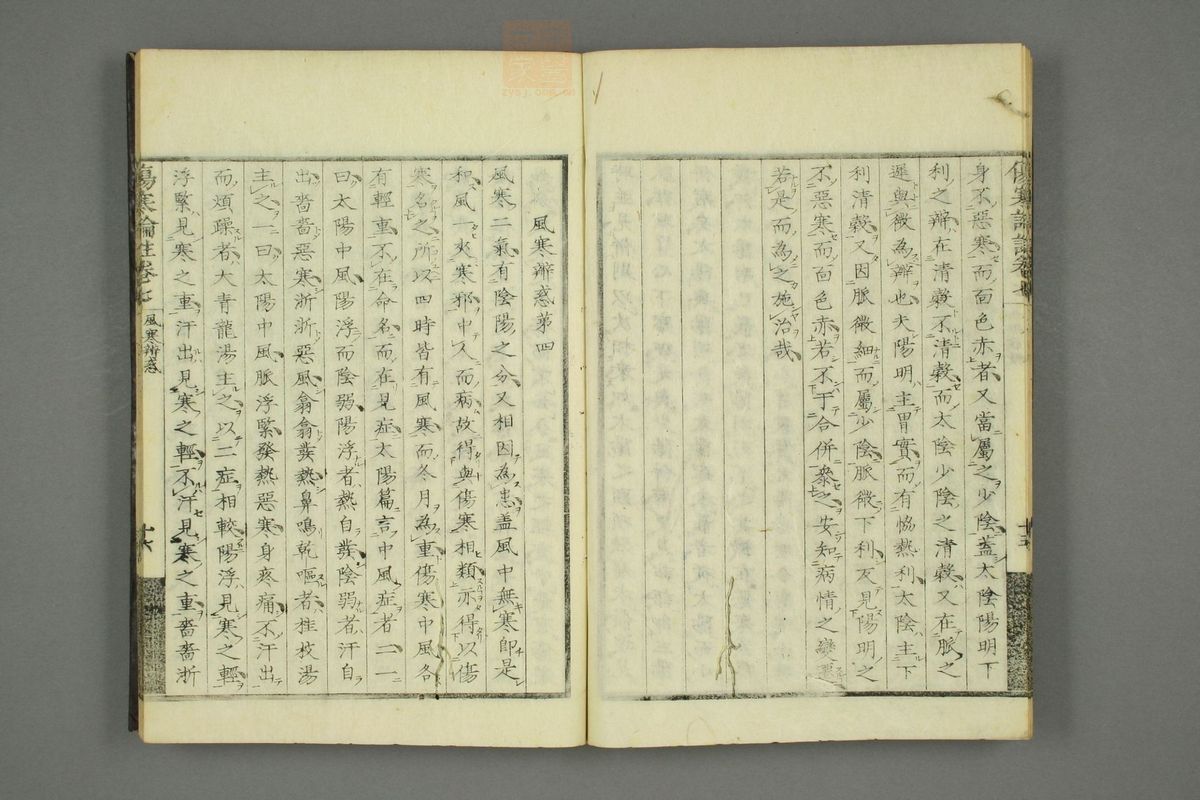 身不惡寒而面色赤者又當屬之少陰蓋太陰陽明下
利之辨在清穀不清穀而太陰少陰之清穀又在脈之
遲與微為辨也夫陽明主胃實而有恊熱利太陰主下
利清穀又因脈微細而屬少陰脈微下利反見陽明之
不惡寒而面色赤若不于合併參之安知病情之變
若是而為之施治哉
十五
風寒辨惑第四
風寒二氣有陰陽之分又相因為患盖風中無寒即是
和風一夾寒邪中人而病故得與傷寒相類亦得以傷
寒名之所以四時皆有風寒而冬月為重傷寒中風各
有輕重不在命名而在見症太陽篇言中風症者二一
曰太陽中風陽浮而陰弱陽浮者熱自發陰弱者汗自
出嗇嗇惡寒淅淅惡風翕翕發熱鼻鳴乾嘔者桂枝湯
主之一曰太陽中風脈浮緊發熱惡寒身疼痛不汗出
而煩躁者大青龍湯主之以二症相較陽浮見寒之輕
浮緊見寒之重汗出見寒之輕不汗見寒之重嗇嗇淅
傷寒論註卷七
風寒辨惑
十六